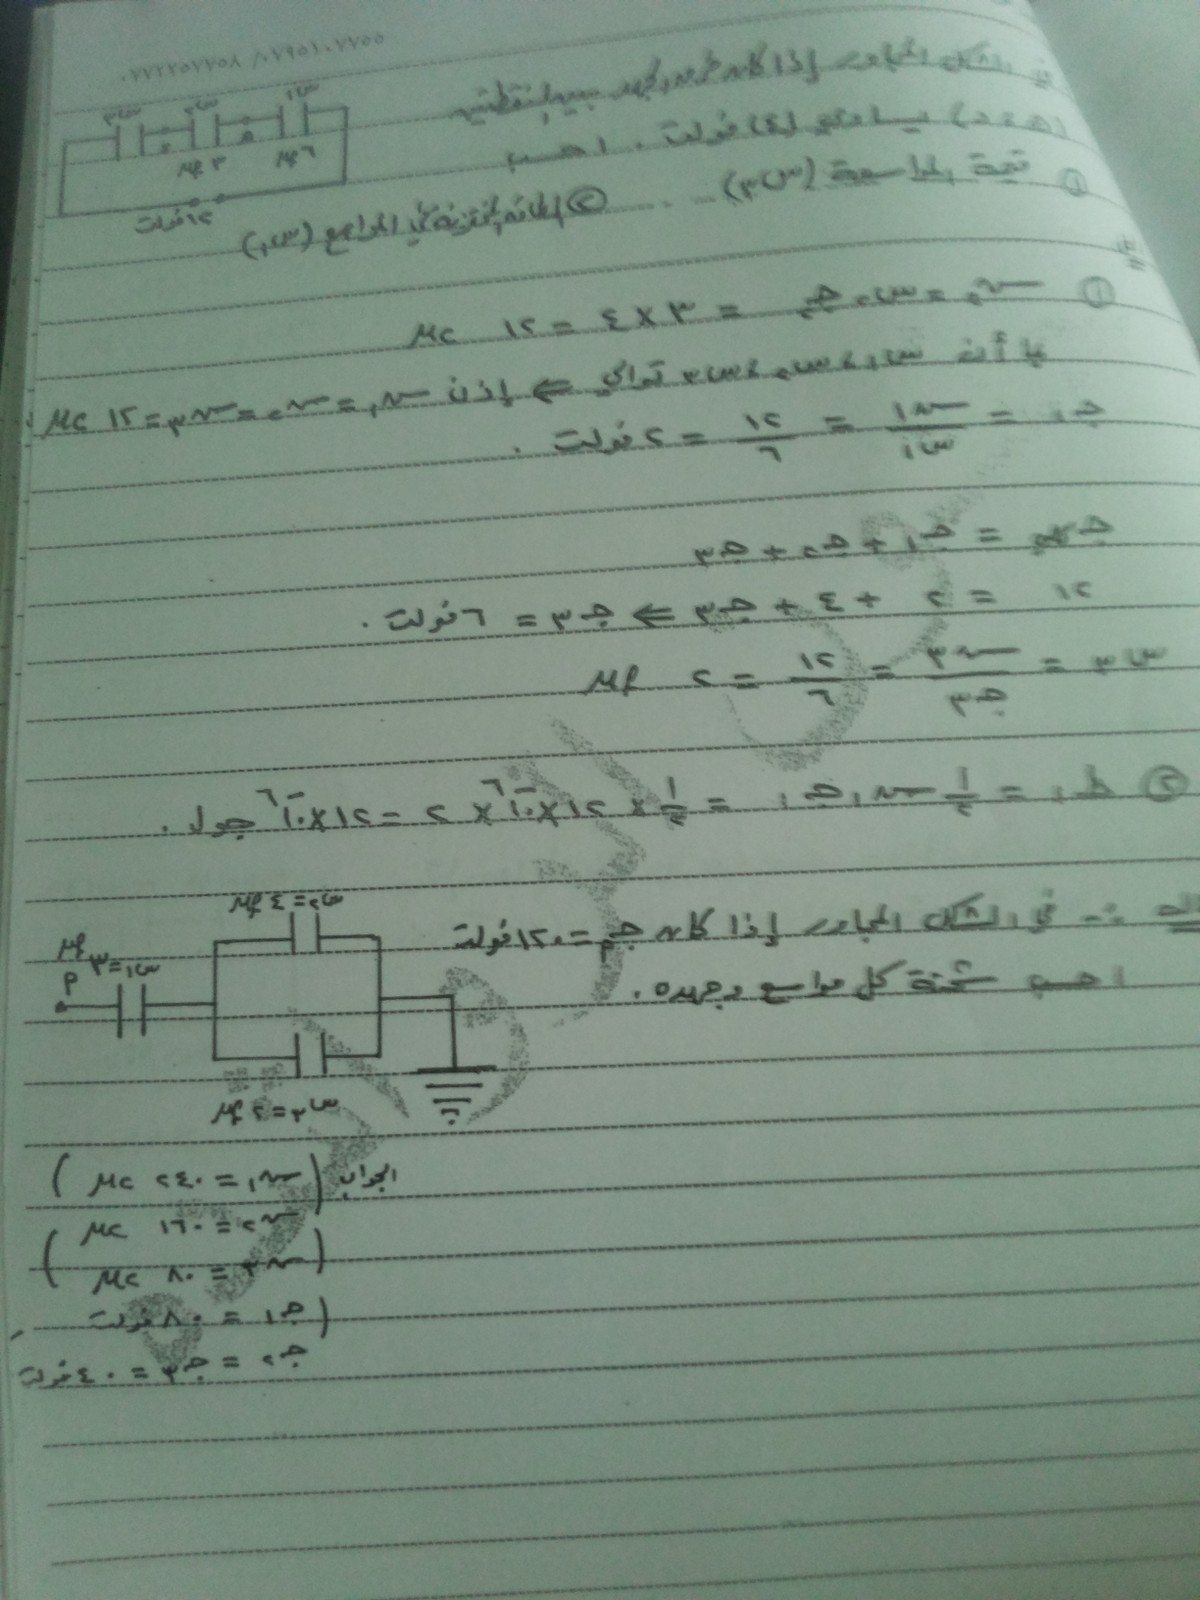 ٠٧٩٥١٠٧٧٥٥ / ٠٧٢٢٢٥٧٧٥٨
في الشكل المجاور إذا كان فرق الجهد بين النقطتين
(هـ ، د) يساوي (٤) فولت . احسب
س٣ س٢ س١
هـ د
٣ μf ٦ μf
١٢ فولت
① قيمة المواسعة (س٣) ② الطاقة المختزنة في المواسع (س١)
① س٢ = س٢ جـ٢ = ٣ × ٤ = ١٢ μc
بما أن س١ ، س٢ ، س٣ توالي ⇐ إذن س١ = س٢ = س٣ = ١٢ μc
جـ١ = س١ / س١ = ١٢ / ٦ = ٢ فولت .
جـ كلي = جـ١ + جـ٢ + جـ٣
١٢ = ٢ + ٤ + جـ٣ ⇐ جـ٣ = ٦ فولت .
س٣ = س٣ / جـ٣ = ١٢ / ٦ = ٢ μf
② ط١ = ١/٢ س١ جـ١ = ١/٢ × ١٢ × ١٠^-٦ × ٢ = ١٢ × ١٠^-٦ جول .
في الشكل المجاور إذا كان جـ = ١٢٠ فولت
احسب شحنة كل مواسع وجهده .
س٢ = ٤ μf
س١ = ٣ μf
س٣ = ٢ μf
الجواب (س١ = ٢٤٠ μc)
(س٢ = ١٦٠ μc
س٣ = ٨٠ μc)
(جـ١ = ٨٠ فولت
جـ٢ = جـ٣ = ٤٠ فولت